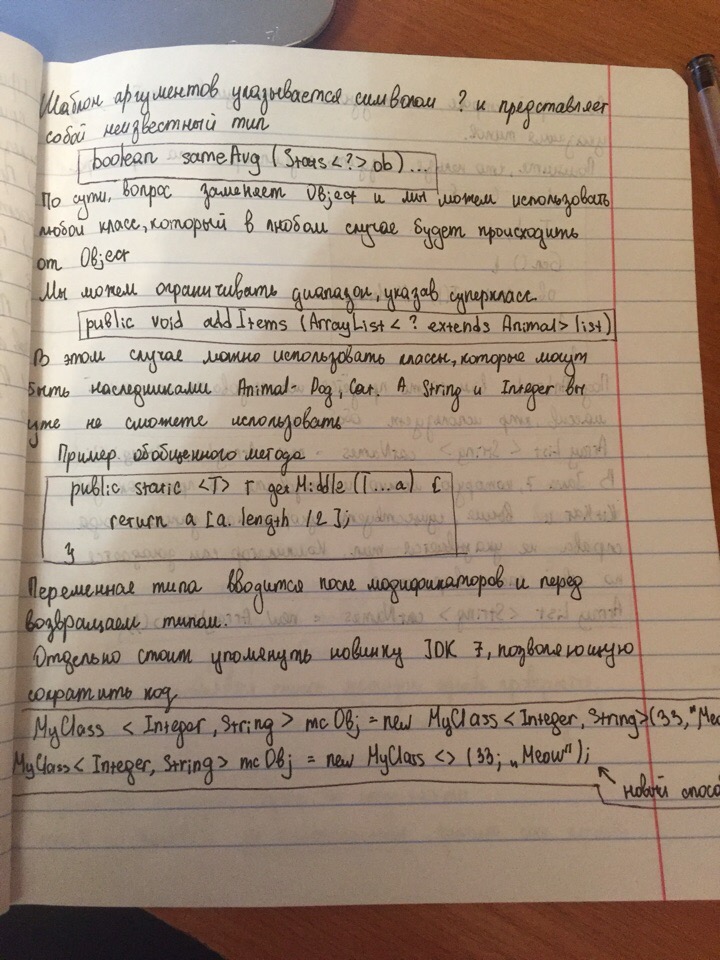 Шаблон аргументов указывается символом ? и представляет
собой неизвестный тип
boolean sameAvg (Stats<?> ob)...
По сути, вопрос заменяет Object и мы можем использовать
любой класс, который в любом случае будет происходить
от Object
Мы можем ограничивать диапазон, указав суперкласс.
public void addItems (ArrayList< ? extends Animal> list)
В этом случае можно использовать классы, которые могут
быть наследниками Animal- Dog, Cat. А String и Integer вы
уже не сможете использовать
Пример обобщенного метода
public static <T> T getMiddle (T...a) {
return a [a.length /2];
}
Переменная типа вводится после модификаторов и перед
возвращаем типом.
Отдельно стоит упомянуть новинку JDK 7, позволяющую
сократить код
MyClass < Integer, String> mcObj = new MyClass <Integer, String>(33, "Meo
MyClass< Integer, String> mcObj = new MyClass <> (33; „Meow");
новый спосо